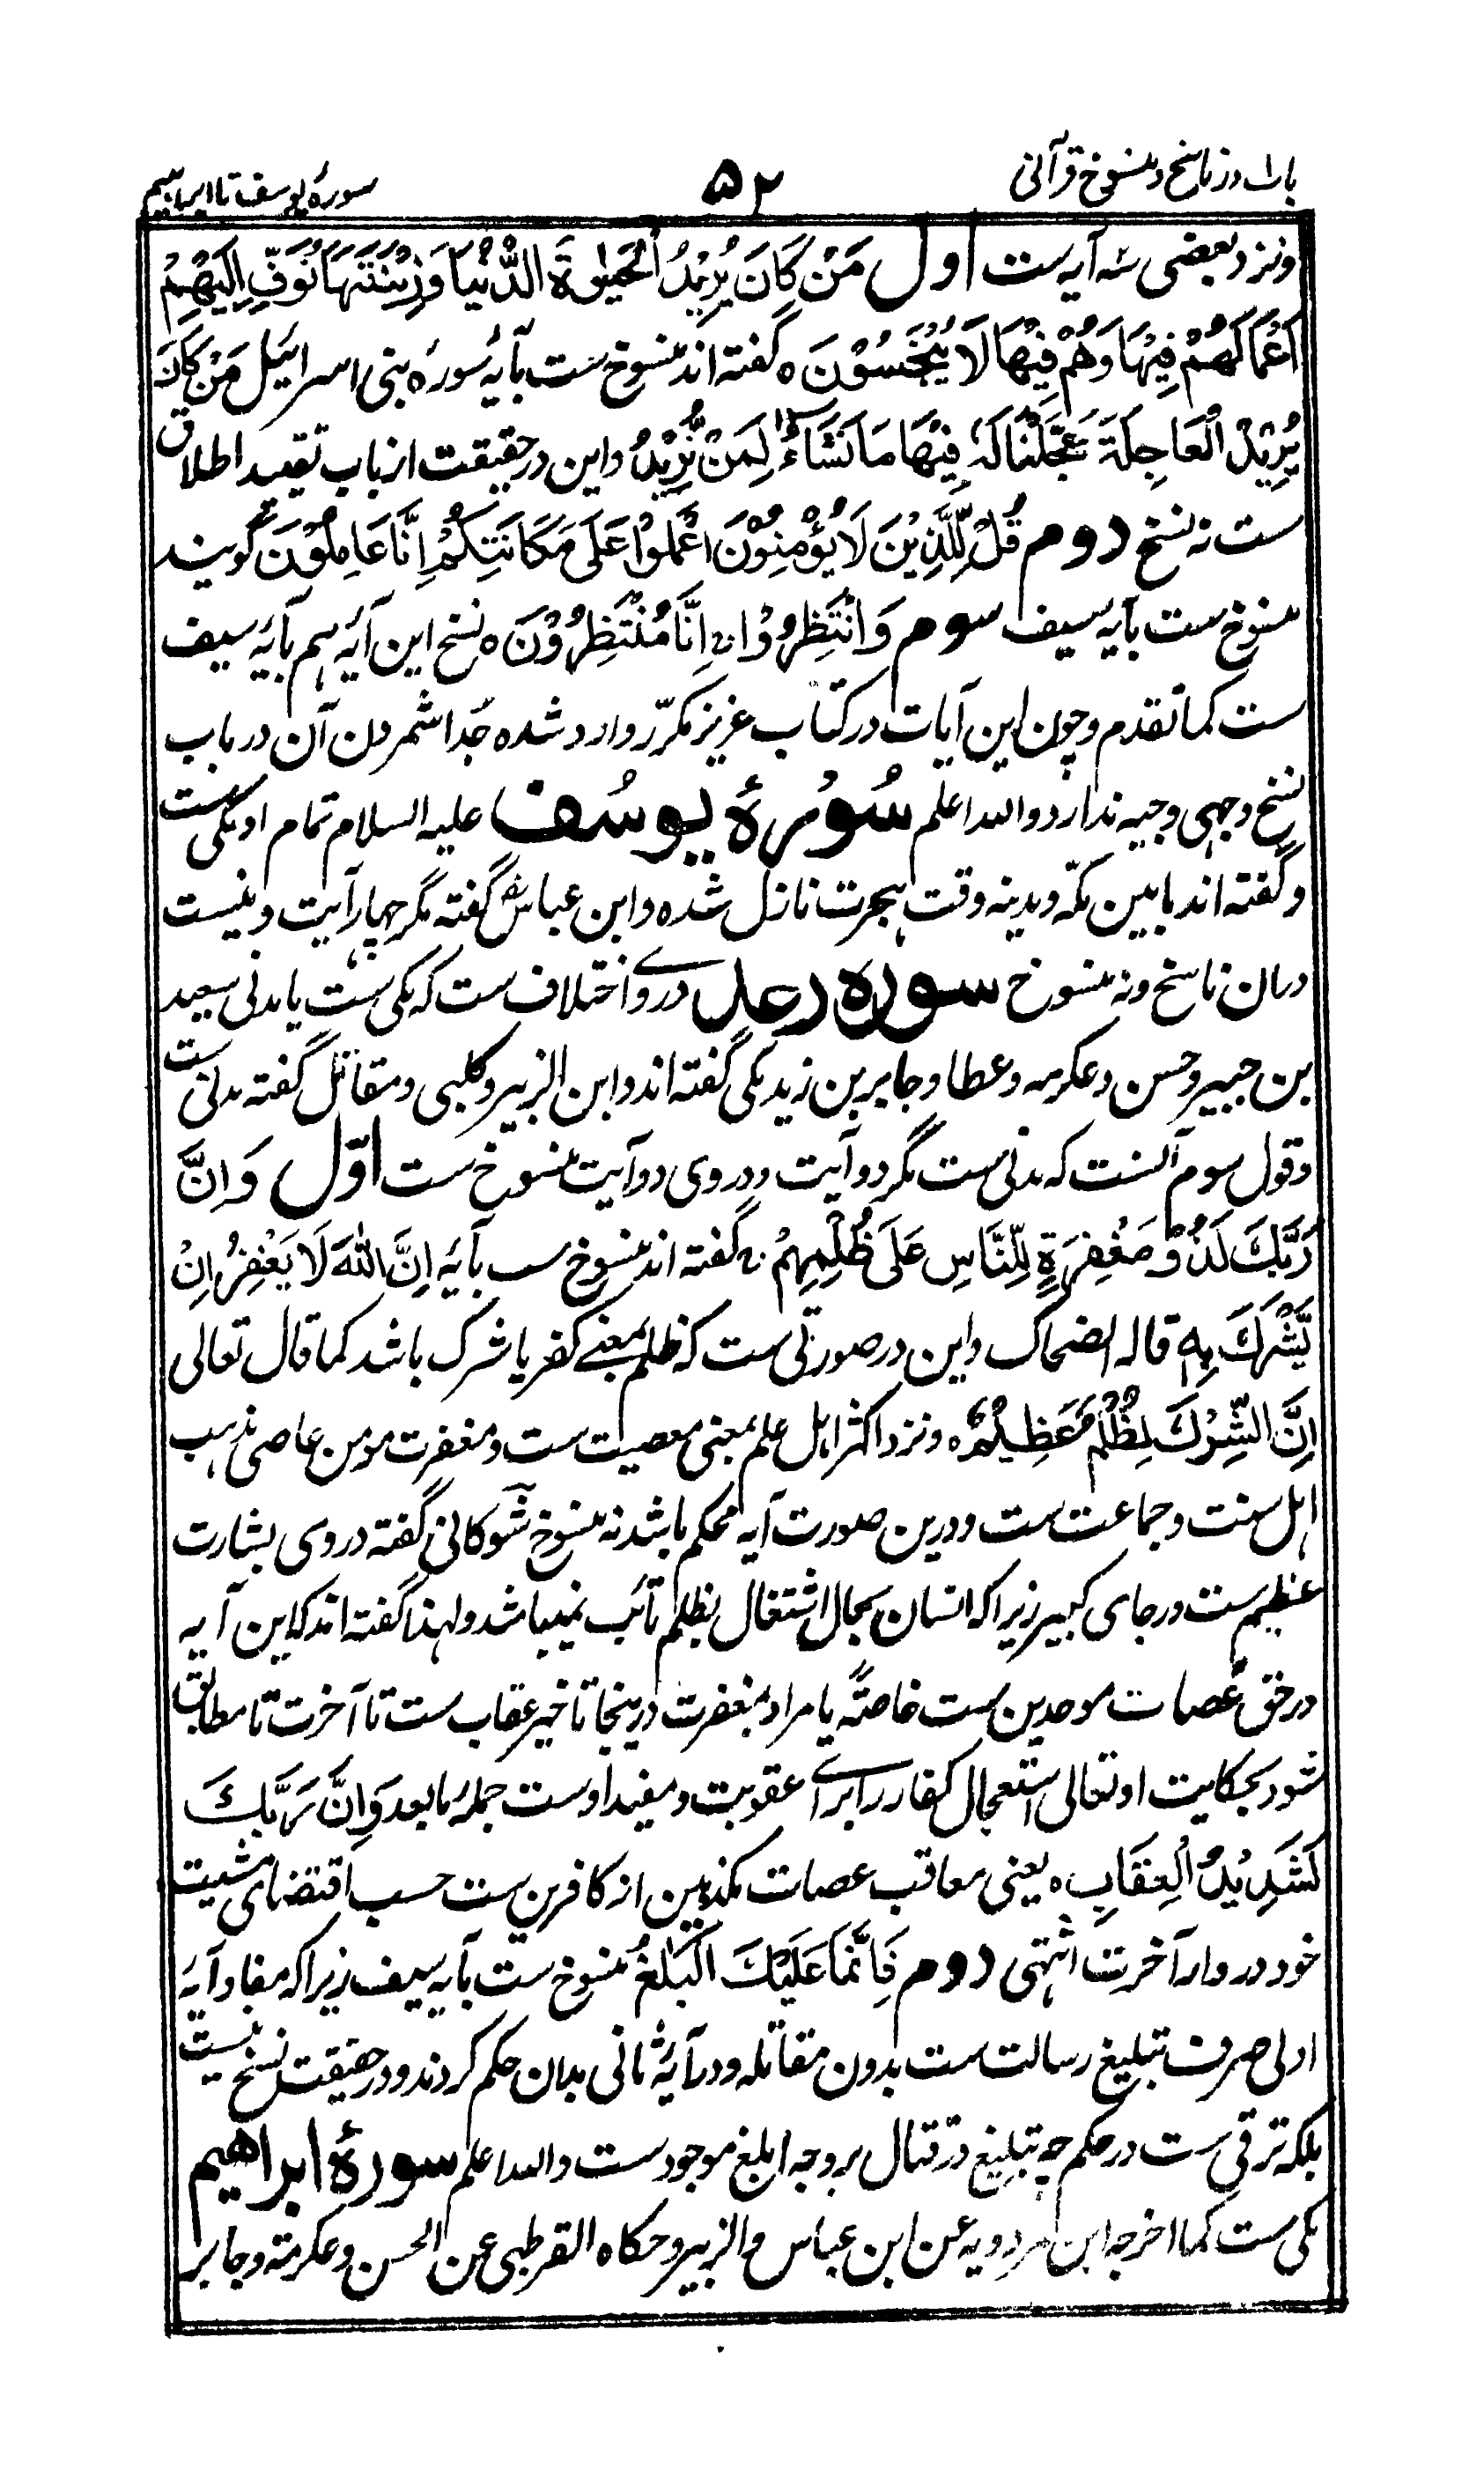 باب ۱ در ناسخ و منسوخ قرآنی
۵۲
سورهٔ یوسف تا ابراهیم
ونزد بعضی سه آیه ست اول مَنْ كَانَ يُرِيْدُ الْحَيٰوةَ الدُّنْيَا وَزِيْنَتَهَا نُوَفِّ اِلَيْهِمْ
اَعْمَالَهُمْ فِيْهَا وَهُمْ فِيْهَا لَا يُبْخَسُوْنَ ه گفته اند منسوخ ست بآیهٔ سورهٔ بنی اسرائیل مَنْ كَانَ
يُرِيْدُ الْعَاجِلَةَ عَجَّلْنَا لَهٗ فِيْهَا مَا نَشَآءُ لِمَنْ نُّرِيْدُ واین در حقیقت از باب تقیید اطلاق
ست نه نسخ دوم قُلْ لِلَّذِيْنَ لَا يُؤْمِنُوْنَ اعْمَلُوْا عَلٰى مَكَانَتِكُمْ اِنَّا عَامِلُوْنَ گویند
منسوخ ست بآیه سیف سوم وَانْتَظِرُوْا اِنَّا مُنْتَظِرُوْنَ ه نسخ این آیه هم بآیهٔ سیف
ست کما تقدم وچون این آیات در کتاب عزیز مکرّر وارد شده جدا شمردن آن در باب
نسخ وجهی وجیه ندارد والله اعلم سُوْرَهٔ یوسُف علیه السلام تمام او مکی ست
وگفته اند مابین مکّه ومدینه وقت هجرت نازل شده وابن عباسؓ گفته مگر چهار آیت ونیست
دران ناسخ ونه منسوخ سوره رعد در وے اختلاف ست که مکی ست یا مدنی سعید
بن جبیر وحسن وعکرمه وعطا وجابر بن زید مکی گفته اند وابن الزبیر وکلبی ومقاتل گفته مدنی ست
وقول سوم آنست که مدنی ست مگر دو آیت ودر وی دو آیت منسوخ ست اوّل وَاِنَّ
رَبَّكَ لَذُوْ مَغْفِرَةٍ لِّلنَّاسِ عَلٰى ظُلْمِهِمْ گفته اند منسوخ ست بآیه اِنَّ اللّٰهَ لَا يَغْفِرُ اَنْ
يُّشْرَكَ بِهٖ قاله الضحاک واین در صورتی ست که ظلم بمعنے کفر یا شرک باشد کما قال تعالی
اِنَّ الشِّرْكَ لَظُلْمٌ عَظِيْمٌ ه ونزد اکثر اهل علم بمعنی معصیت ست ومغفرت مومن عاصی مذهب
اهل سنت وجماعت ست ودرین صورت آیه محکم باشد نه منسوخ شوکانی گفته در وی بشارت
عظیم ست ورجای کبیر زیرا که انسان بحال اشتغال بظلم تائب نمیباشد ولهذا گفته اند که این آیه
در حق عُصات موحدین ست خاصتًه یا مراد بمغفرت درینجا تاخیر عقاب ست تا آخرت تا مطابق
شود بحکایت او تعالی استعجال کفار را برائے عقوبت ومفید اوست جملهٔ ما بعد وَاِنَّ رَبَّكَ
لَشَدِيْدُ الْعِقَابِ ه یعنی معاقب عصات مکذبین از کافرین ست حسب اقتضای مشیت
خود در دار آخرت انتهی دوم فَاِنَّمَا عَلَيْكَ الْبَلٰغُ منسوخ ست بآیه سیف زیرا که مفاد آیهٔ
اولی صرف تبلیغ رسالت ست بدون مقاتله ودر آیهٔ ثانی بدان حکم کردند ودر حقیقت نسخ نیست
بلکه ترقی ست در حکم چه تبلیغ در قتال بر وجه ابلغ موجود ست والله اعلم سورهٔ ابراهیم
مکی ست کما اخرجه ابن مردویه عن ابن عباس والزبیر وحکاه القرطبی عن الحسن وعکرمة وجابر